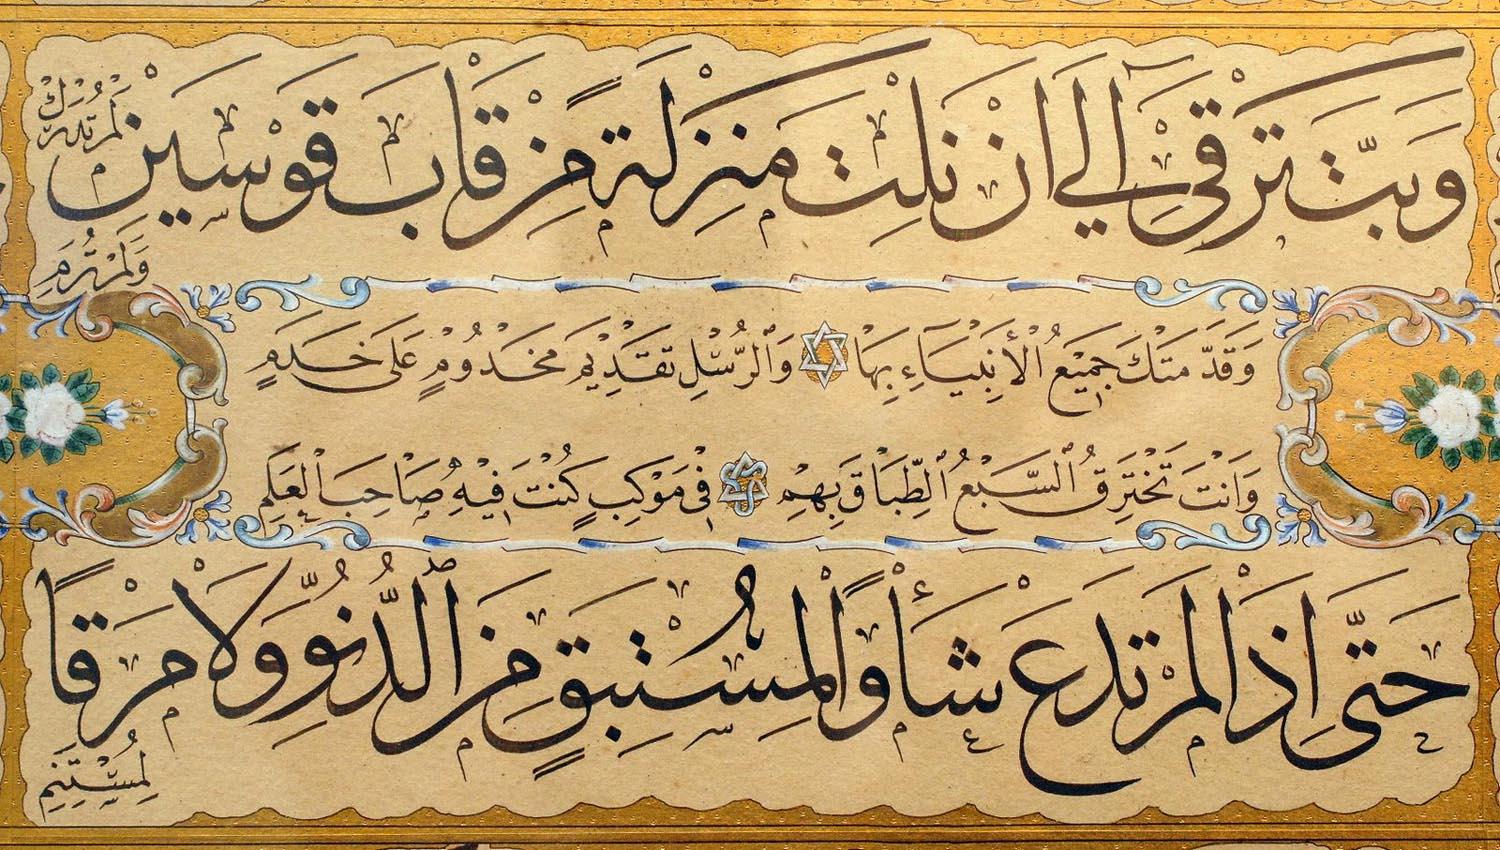 وَبَتَّ تَرْقَىٰ إِلَىٰ اَنْ نِلْتَ مَنْزِلَةً مِنْ قَابَ قَوْسَيْنِ لَمْ تُدْرَكْ
وَلَمْ تُرَمِ
وَقَدَّمَتْكَ جَمِيْعُ الْأَنْبِيَاءِ بِهَا وَالرُّسْلِ تَقْدِيْمَ مَخْدُوْمٍ عَلَى خَدَمٍ
وَاَنْتَ تَخْتَرِقُ السَّبْعَ الطِّبَاقَ بِهِمْ فِيْ مَوْكِبٍ كُنْتَ فِيْهِ صَاحِبَ الْعَلَمِ
حَتَّى اِذْ لَمْ تَدَعْ شَأْوًا لِمُسْتَبِقٍ مِنَ الدُّنُوِّ وَلَا مَرْقًا
لِمُسْتَنِمِ